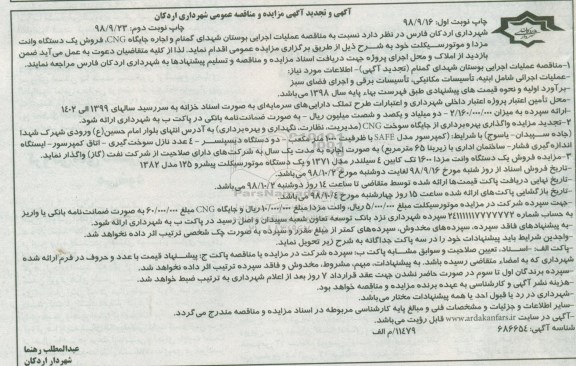 آگهی و تجدید آگهی مزایده و مناقصه عمومی شهرداری اردکان
چاپ نوبت اول: ۹۸/۹/۱۶
چاپ نوبت دوم: ۹۸/۹/۲۳
شهرداری اردکان فارس در نظر دارد نسبت به مناقصه عملیات اجرایی بوستان شهدای گمنام و اجاره جایگاه CNG، فروش یک دستگاه وانت
مزدا و موتورسیکلت خود به شرح ذیل از طریق برگزاری مزایده عمومی اقدام نماید. لذا از کلیه متقاضیان دعوت به عمل می‌آید ضمن
بازدید از املاک و محل اجرای پروژه جهت دریافت اسناد مزایده و مناقصه و تسلیم پیشنهادها به شهرداری اردکان فارس مراجعه نمایند.
۱-مناقصه عملیات اجرایی بوستان شهدای گمنام (تجدید آگهی)- اطلاعات مورد نیاز:
-عملیات اجرائی شامل ابنیه، تأسیسات مکانیکی، تأسیسات برقی و اجرای فضای سبز
-برآورد اولیه و نحوه قیمت های پیشنهادی طبق فهرست بهاء پایه سال ۱۳۹۸ می‌باشد.
-محل تأمین اعتبار پروژه اعتبار داخلی شهرداری و اعتبارات طرح تملک دارایی‌های سرمایه‌ای به صورت اسناد خزانه به سررسید سالهای ۱۳۹۹ الی ۱۴۰۲
-ارائه سپرده به میزان ۲/۱۶۰/۰۰۰/۰۰۰- دو میلیارد و یکصد و شصت میلیون ریال - به صورت ضمانت‌نامه بانکی در پاکت ب به شهرداری ارائه شود.
۲-تجدید مزایده واگذاری بهره‌برداری از جایگاه سوخت CNG (مدیریت، نظارت، نگهداری و بهره‌برداری) به آدرس انتهای بلوار امام حسین(ع) ورودی شهرک شهدا
(جاده سپیدان- یاسوج) با شرایط: (کمپرسور مدل SAFE با ظرفیت ۱۰۰۰ متر مکعب - دو دستگاه دیسپنسر - ٤عدد نازل سوخت گیری - اتاق کمپرسور- ایستگاه
اندازه‌گیری فشار- ساختمان اداری با زیربنا ۶۵ مترمربع) به صورت اجاره به مدت یک سال به شرکت‌های دارای صلاحیت از شرکت نفت (گاز) واگذار نماید.
۳-مزایده فروش یک دستگاه وانت مزدا ۱۶۰۰ تک کابین ٤ سیلندر مدل ۱۳۷۱ و یک دستگاه موتورسیکلت پیشرو ۱۲۵ مدل ۱۳۸۲
-تاریخ فروش اسناد از روز شنبه مورخ ۹۸/۹/۱۶ لغایت دوشنبه مورخ ۹۸/۱۰/۲ می‌باشد.
-تاریخ نهایی دریافت پاکت قیمت‌ها ارائه شده توسط متقاضی تا ساعت ۱۴ روز دوشنبه ۹۸/۱۰/۲ می‌باشد.
-تاریخ بازگشایی پاکت‌های ارائه شده ساعت ۱۵ روز چهارشنبه مورخ ۹۸/۱۰/٤ می‌باشد.
-جهت سپرده شرکت در مزایده موتورسیکلت مبلغ ۵/۰۰۰/۰۰۰ ریال، وانت مزدا مبلغ ۱۰/۰۰۰/۰۰۰ ریال و جایگاه CNG مبلغ ۶۰/۰۰۰/۰۰۰ به صورت ضمانت‌نامه بانکی یا واریز
به حساب شماره سپرده شهرداری نزد بانک توسعه تعاون شعبه سپیدان و اصل رسید در پاکت ب به شهرداری ارائه شود.
-به پیشنهادهای فاقد سپرده، سپرده‌های مخدوش، سپرده‌های کمتر از مبلغ مقرر و سپرده به صورت چک شخصی ترتیب اثر داده نخواهد شد.
-واجدین شرایط باید پیشنهادات خود را در سه پاکت جداگانه به شرح زیر تحویل نماید.
-پاکت الف -اسناد، تعیین صلاحیت و سوابق مشابه پاکت ب: سپرده شرکت در مزایده یا مناقصه پاکت ج: پیشنهاد قیمت با عدد و حروف در فرم ارائه شده
شهرداری که به امضاء متقاضی رسیده باشد. به پیشنهادات، مبهم، مشروط، مخدوش و فاقد سپرده ترتیب اثر داده نخواهد شد.
-سپرده برندگان اول تا سوم در صورت حاضر نشدن جهت عقد قرارداد ۷ روز بعد از اعلام شهرداری به ترتیب ضبط خواهد شد.
-هزینه نشر آگهی و کارشناسی به عهده برنده مزایده و مناقصه خواهد بود.
-شهرداری در رد یا قبول احد یا همه پیشنهادات مختار می‌باشد.
-سایر اطلاعات و جزئیات و مشخصات فنی و مبالغ پایه کارشناسی مربوطه در اسناد مزایده و مناقصه مندرج می‌گردد.
-آگهی در سایت www.ardakanfars.ir قابل رؤیت می‌باشد.
شناسه آگهی: ۶۸۶۶۵٤ ۱۱٤۷۹/م الف
عبدالمطلب رهنما
شهردار اردکان